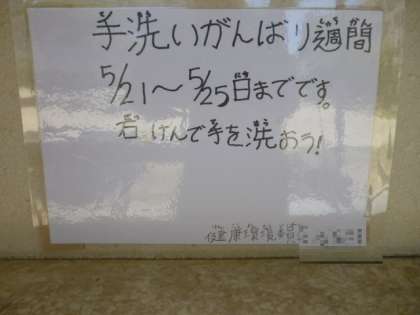 手洗いがんばり週間
5/21〜5/25日までです。
石けんで手を洗おう!
健康環境